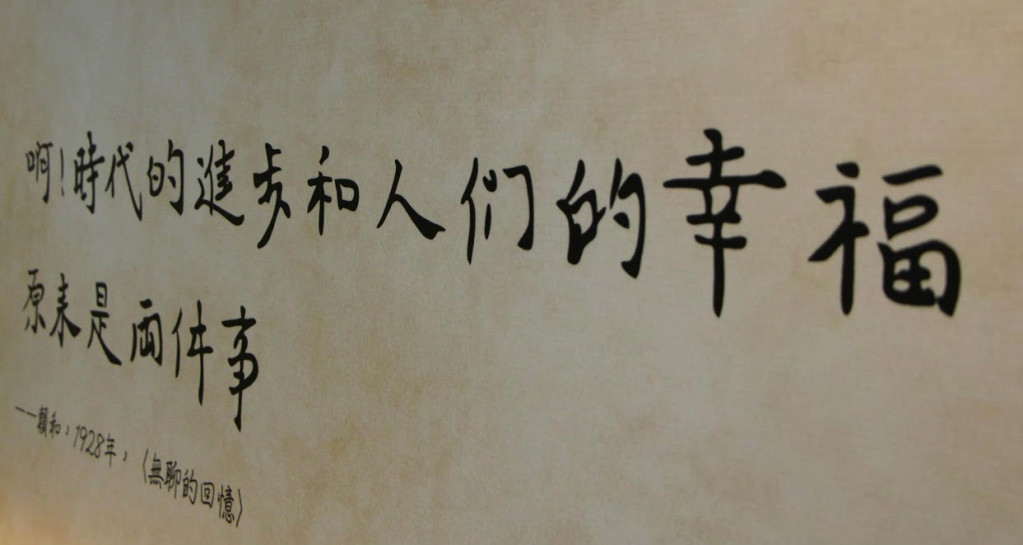 啊!時代的進步和人们的幸福
原来是兩件事
──賴和,1928年,〈無聊的回憶〉